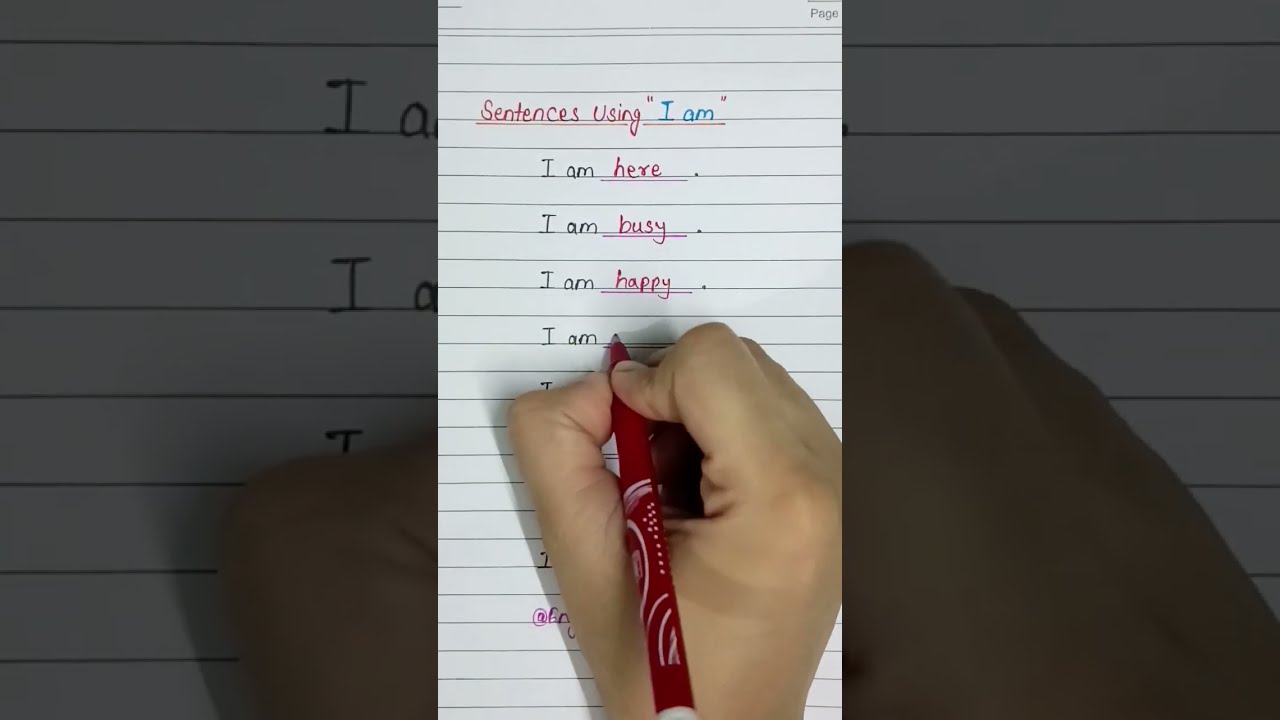 Page
Sentences Using "I am"
I am here .
I am busy .
I am happy .
I am
I
I